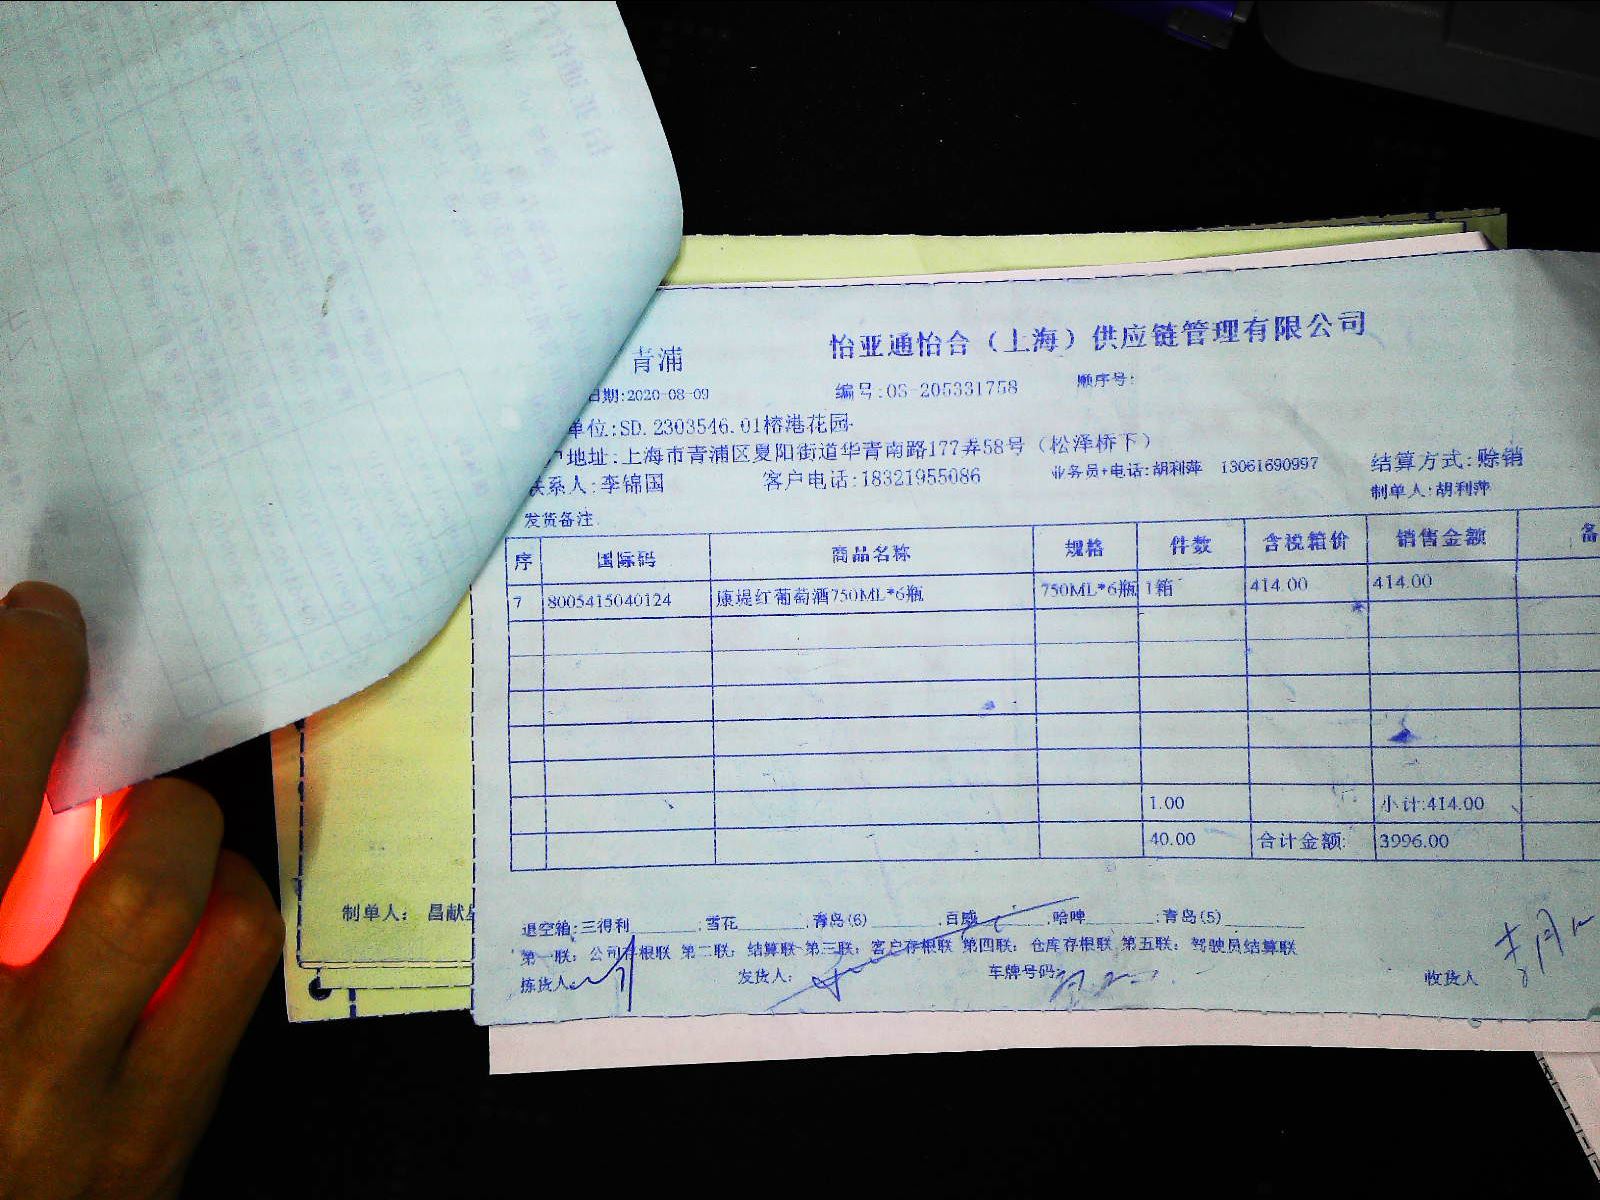 怡亚通怡合（上海）供应链管理有限公司
青浦
日期:2020-08-09 编号:OS-205331758 顺序号:
单位:SD.2303546.01榕港花园
户地址:上海市青浦区夏阳街道华青南路177弄58号（松泽桥下）
联系人:李锦国 客户电话:18321955086 业务员+电话:胡利萍 13061690997 结算方式:赊销
制单人:胡利萍
发货备注
序 国际码 商品名称 规格 件数 含税箱价 销售金额 备
7 8005415040124 康堤红葡萄酒750ML*6瓶 750ML*6瓶 1箱 414.00 414.00
1.00 小计:414.00
40.00 合计金额: 3996.00
退空箱:三得利______;雪花______;青岛(6)______;百威______;哈啤______;青岛(5)______
第一联：公司存根联 第二联：结算联 第三联：客户存根联 第四联：仓库存根联 第五联：驾驶员结算联
拣货人: 发货人: 车牌号码: 收货人
制单人： 昌献